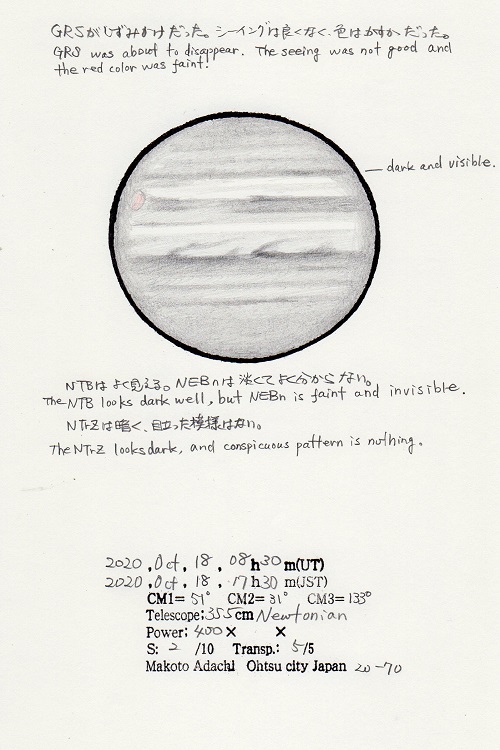 GRSがしずみかけだった。シーイングは良くなく、色はかすかだった。
GRS was about to disappear. The seeing was not good and
the red color was faint.
dark and visible.
NTBはよく見える。NEBnは淡くてよく分からない。
The NTB looks dark well, but NEBn is faint and invisible.
NTrZは暗く、目立った模様はない。
The NTrZ looks dark, and conspicuous pattern is nothing.
2020, Oct, 18, 08h30m(UT)
2020, Oct, 18, 17h30m(JST)
CM1= 51° CM2= 31° CM3= 133°
Telescope: 355cm Newtonian
Power: 400× ×
S: 2 /10 Transp.: 5/5
Makoto Adachi Ohtsu city Japan 20-70